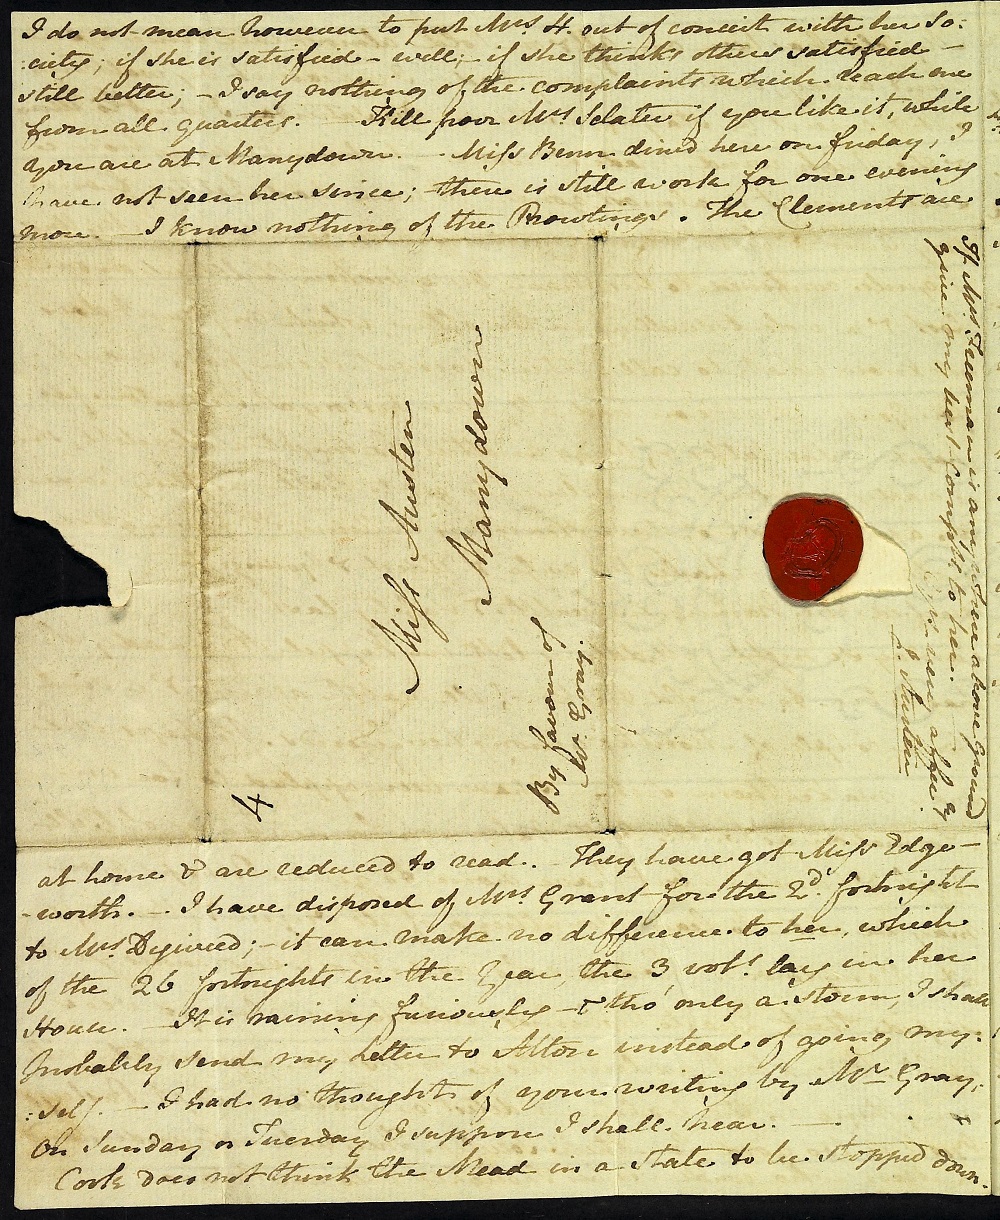 I do not mean however to put Mrs. H. out of conceit with her So:
:ciety; if she is satisfied - well; - if she thinks others satisfied -
still better; - I say nothing of the complaints which reach me
from all quarters. - Kill poor Mrs. Sclater if you like it, while
you are at Manydown. - Miss Benn dined here on friday, I
have not seen her since; - there is still work for one evening
more. - I know nothing of the Prowtings. The Clements are
Miss Austen
Manydown
By favour of
Mr. Gray.
4
at home & are reduced to read. - They have got Miss Edge-
-worth. - I have disposed of Mrs. Grant for the 2d. fortnight
to Mrs. Digweed; - it can make no difference to her, which
of the 26 fortnights in the Year, the 3 vols. lay in her
House. - It is raining furiously - & tho' only a storm, I shall
probably send my Letter to Alton instead of going my:
:self. - I had no thought of your writing by Mr. Gray;
On Sunday or Tuesday I suppose I shall hear. -
Cook does not think the Mead in a state to be stopped down.
If Mrs. Freeman is anywhere above ground
give my best Compts. to her.
Yrs. very affecly.
J. Austen